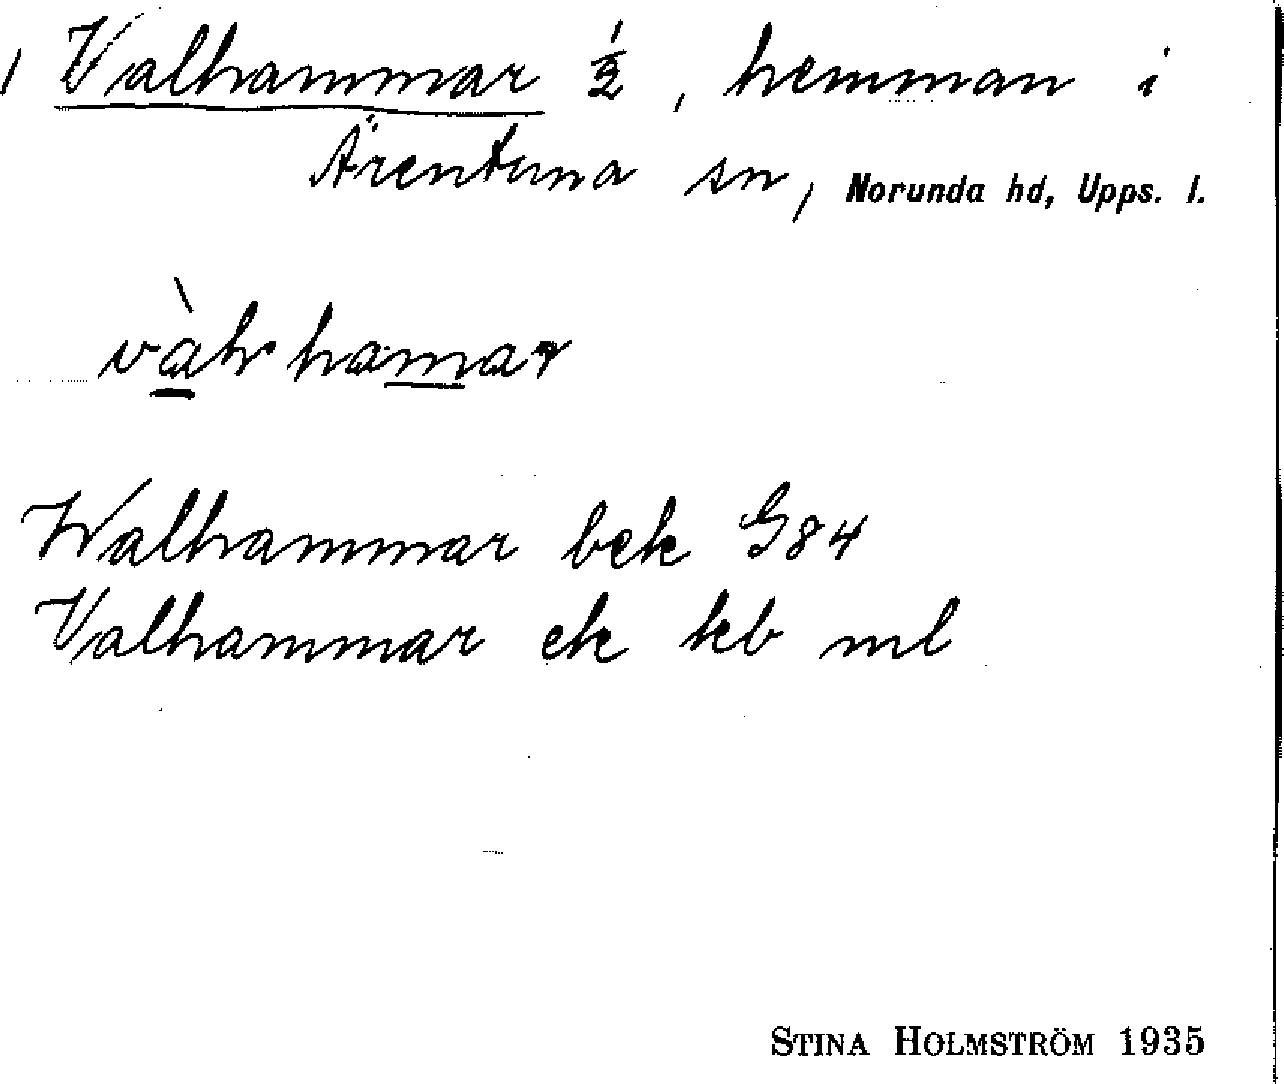 Valhammar ½, hemman i
Ärentuna sn, Norunda hd, Upps. l.
Walhammar bek G84
Valhammar ek kb ml
STINA HOLMSTRÖM 1935